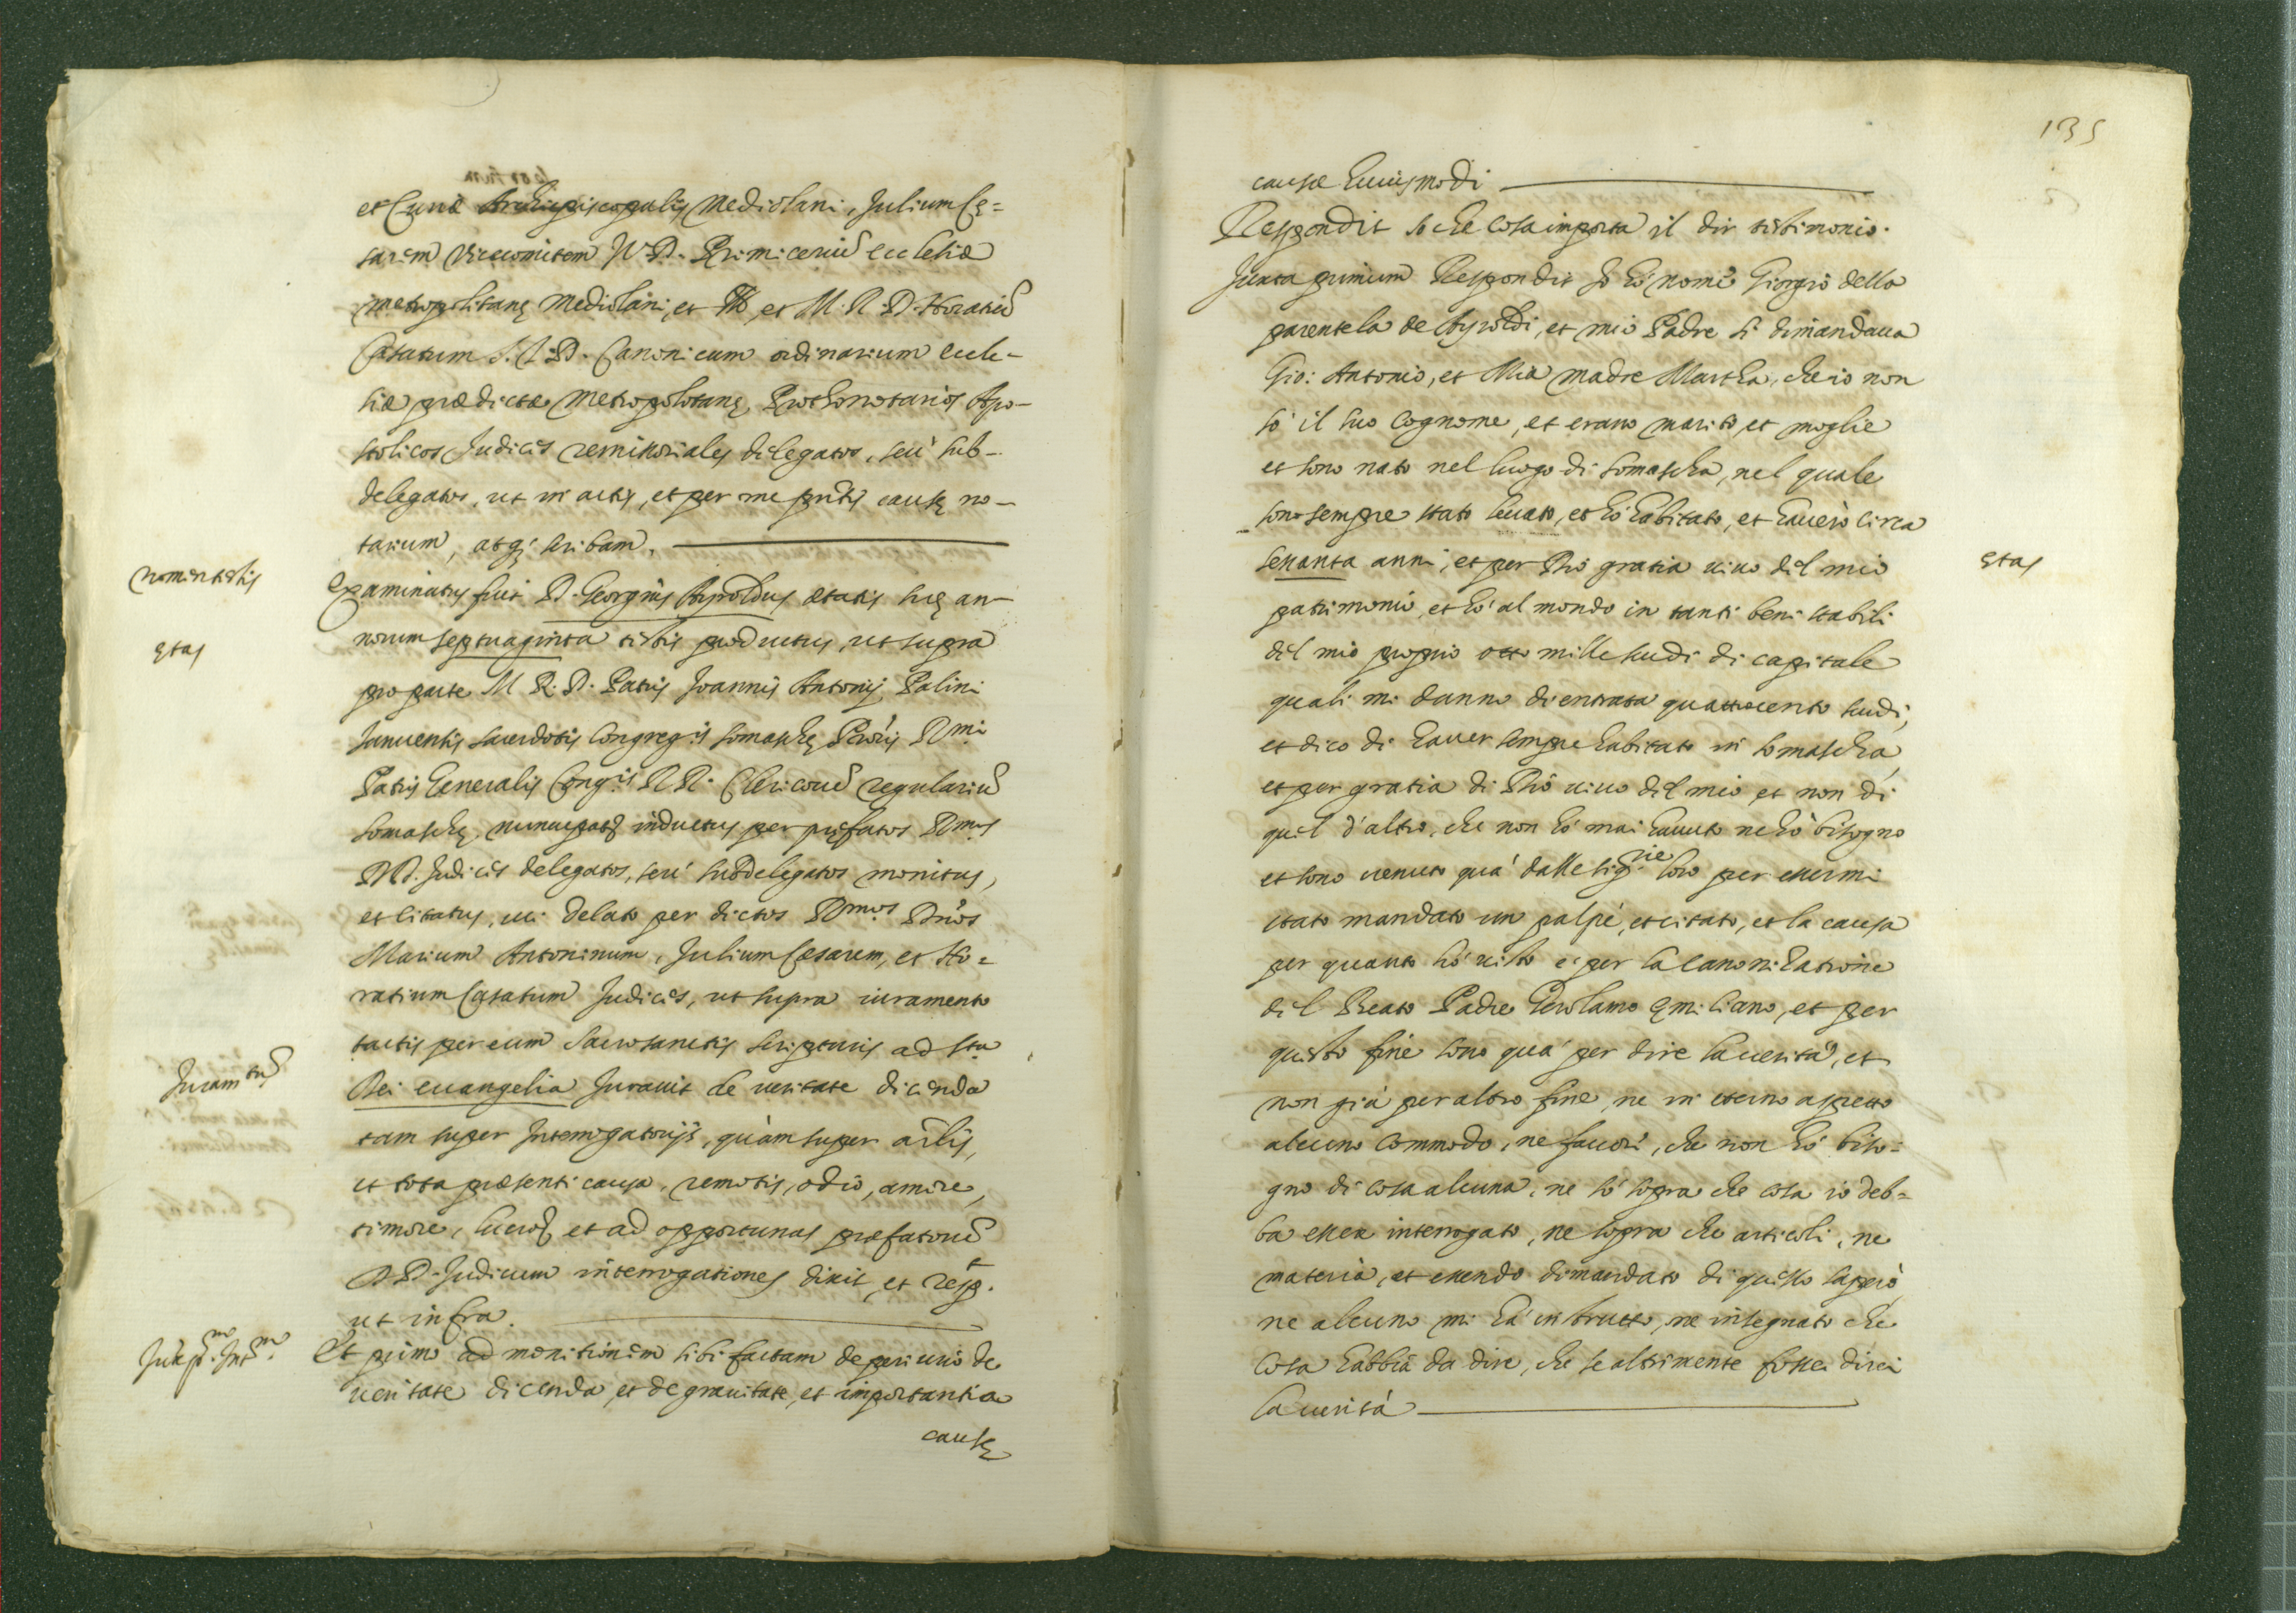 et Curiæ Archiepiscopalis Mediolani, Julium Cę=
sarem Vicecomitem J.V.D. Primiceriũ ecclesiæ
metropolitanę Mediolani, et et M. R. D. Horatiũ
Casatum J.V.D. Canonicum ordinarium eccle-
siæ prædictæ metropolitanę Prothonotarios Apo-
stolicos Judices remissoriales delegatos, seù sub-
delegatos, ut in actis, et per me pñtis causę no-
tarium, atq; scribam.
nomen testis
Examinatus fuit D. Georgius Ayroldus ætatis suę an-
norum septuaginta testis productus, ut supra
ętas
pro parte M. R. D. Patris Joannis Antonij Palini
Januensis sacerdotis Congreg.is Somaschę Prõris R.mi
Patris Generalis Cong.is RR. Clericorũ regulariũ
Somaschę, nuncupatę inductus per pręfatos R.mos
DD. Judices delegatos, seù subdelegatos monitus,
et citatus, cui delato per dictos R.mos Dños
Marium Antoninum, Julium Cæsarem, et Ho=
ratium Casatum Judices, ut supra iuramento
tactis per eum Sacrosanctis scripturis ad s.ta
Juram.tũ
Dei evangelia Juravit de veritate dicenda
tam super Interrogatorijs, quàm super artĩlis,
et tota præsenti causa, remotis, odio, amore,
timore, lucro et ad opportunas præfatorũ
DD. Judicum interrogationes dixit, et resp.t
ut infra.
Juxta p.m Int.m
Et primo ad monitionem sibi factam de periurio de
veritate dicenda, et de gravitate, et importantia
causę
135
causæ huiusmodi
Respondit so che cosa importa il dir testimonio.
Juxta primum Respondit Io hò nome Giorgio della
parentela de Ayroldi, et mio Padre si dimandava
Gio: Antonio, et Mia madre Martha, che io non
sò il suo cognome, et erano marito, et moglie
et sono nato nel luogo di Somascha, nel quale
sono sempre stato levato, et hò habitato, et haverò circa
settanta anni, et per Dio gratia vivo del mio
ętas
patrimonio, et hò al mondo in tanti beni stabili
del mio proprio otto mille scudi di capitale
quali mi danno di entrata quattrocento scudi,
et dico di haver sempre habitato in Somascha,
et per gratia di Dio vivo del mio, et non di
quel d'altro, che non hò mai havuto ne hò bisogno
et sono venuto quà dalle sig.rie loro per essermi
stato mandato un palpè, et citato, et la causa
per quanto hò visto è per la canonizatione
del Beato Padre Gerolamo Emiliano, et per
questo fine sono quà per dire la verità, et
non già per altro fine, ne in eterno aspetto
alcuno commodo, ne favori, che non hò biso=
gno di cosa alcuna, ne sò sopra che cosa io deb=
ba esser interrogato, ne sopra che articoli, ne
materia, et essendo dimandato di questo saperò,
ne alcuno mi hà instrutto, ne insegnato che
cosa habbia da dire, che se altrimente fosse direi
la verità